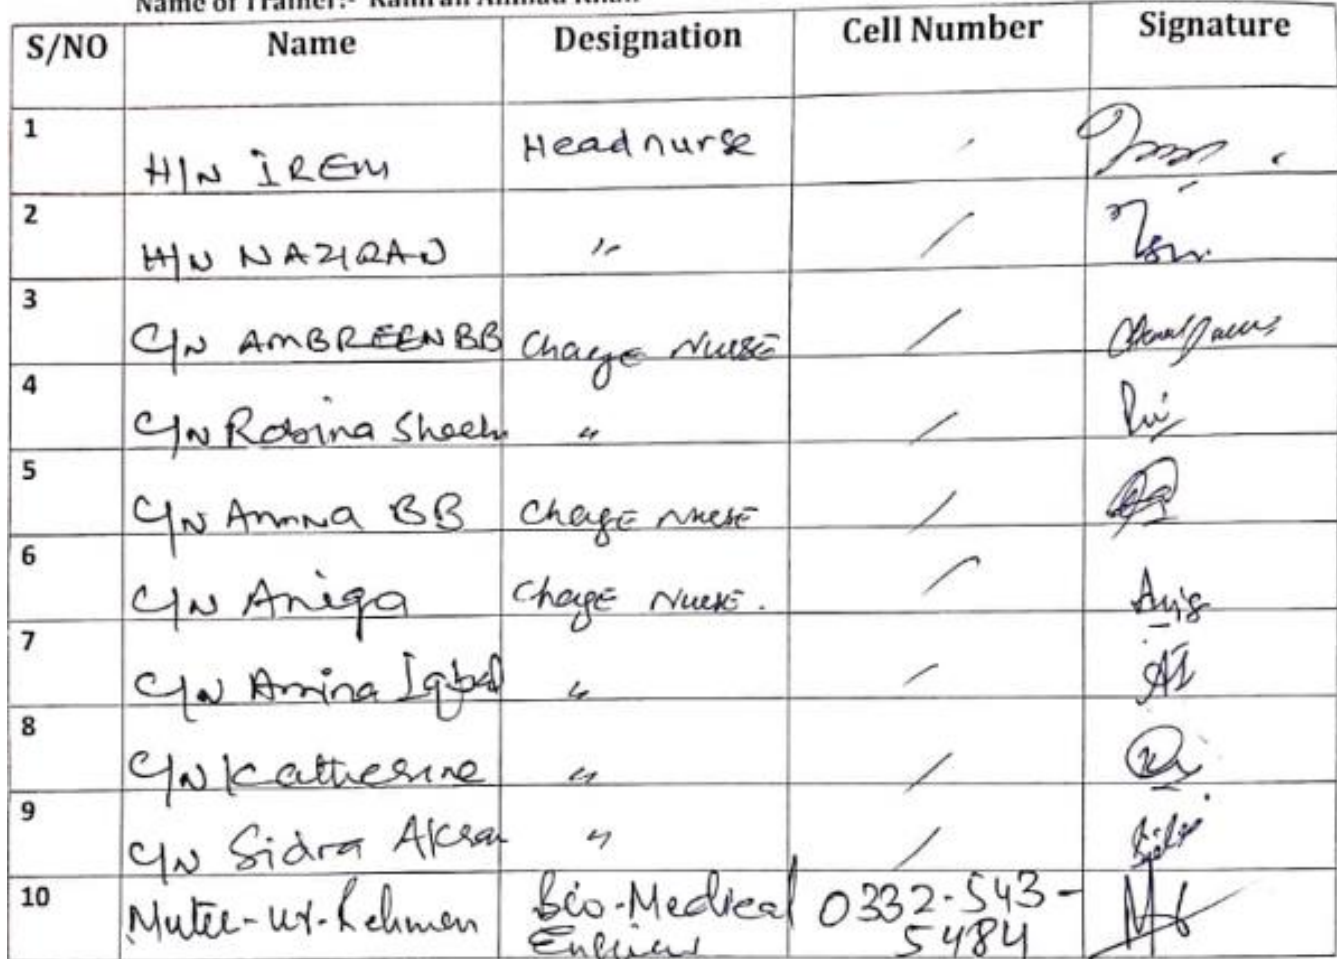 Name of Trainer:- Kamran Ahmad Khan
S/NO Name Designation Cell Number Signature
1 H/N IREM Head nurse /
2 H/N NAZIRAN " /
3 C/N AMBREEN BB Charge Nurse /
4 C/N Robina Sheeh " /
5 C/N Amna BB Charge Nurse /
6 C/N Aniqa Charge Nurse. /
7 C/N Amina Iqbal " /
8 C/N Katherine " /
9 C/N Sidra "  /
10 Mutee-ur-Rehman Bio-Medical 0332-543-
Engineer 5484